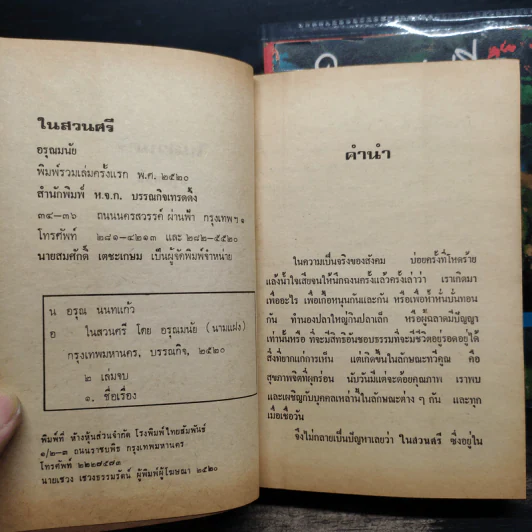 ในสวนศรี
อรุณมนัย
พิมพ์รวมเล่มครั้งแรก พ.ศ. ๒๕๒๐
สำนักพิมพ์ ห.จ.ก. บรรณกิจเทรดดิ้ง
๓๔-๓๖ ถนนนครสวรรค์ ผ่านฟ้า กรุงเทพฯ ๑
โทรศัพท์ ๒๘๑-๔๒๑๓ และ ๒๘๒-๕๕๒๐
นายสมศักดิ์ เตชะเกษม เป็นผู้จัดพิมพ์จำหน่าย
น อรุณ นนทแก้ว
อ ในสวนศรี โดย อรุณมนัย (นามแฝง)
กรุงเทพมหานคร, บรรณกิจ, ๒๕๒๐
๒ เล่มจบ
๑. ชื่อเรื่อง
พิมพ์ที่ ห้างหุ้นส่วนจำกัด โรงพิมพ์ไทยสัมพันธ์
๑/๒-๓ ถนนราชบพิธ กรุงเทพมหานคร
โทรศัพท์ ๒๒๒๗๕๗๓
นายเชวง เชวงธรรมรัตน์ ผู้พิมพ์ผู้โฆษณา ๒๕๒๐
คำนำ
ในความเป็นจริงของสังคม บ่อยครั้งที่โหดร้าย
แล้งน้ำใจเสียจนให้นึกฉงนครั้งแล้วครั้งเล่าว่า เราเกิดมา
เพื่ออะไร เพื่อเกื้อหนุนกันและกัน หรือเพื่อห้ำหั่นบั่นทอน
กัน ทำนองปลาใหญ่กินปลาเล็ก หรือผู้ฉลาดมีปัญญา
เท่านั้นหรือ ที่จะมีสิทธิอันชอบธรรมที่จะมีชีวิตอยู่รอดอยู่ได้
สิ่งที่ยากแก่การเห็น แต่เกิดขึ้นในลักษณะทวีคูณ คือ
สุขภาพจิตที่ผุกร่อน นับวันมีแต่จะด้อยคุณภาพ เราพบ
และเผชิญกับบุคคลเหล่านี้ในลักษณะต่าง ๆ กัน และทุก
เมื่อเชื่อวัน
จึงไม่กลายเป็นปัญหาเลยว่า ในสวนศรี ซึ่งอยู่ใน